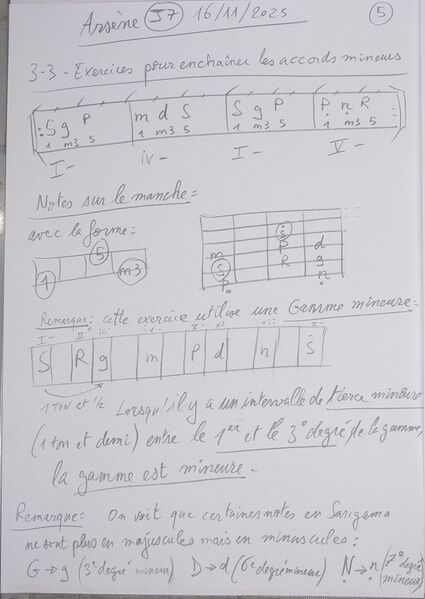 Arsène J7 16/11/2025 5
3-3- Exercices pour enchaîner les accords mineurs
S g P m d S S g P P n R
1 m3 5 1 m3 5 1 m3 5 1 m3 5
I- iv- I- V-
Notes sur le manche =
avec la forme:
5
1 m3
S
m P d
S R g
P n
Remarque: cette exercice utilise une Gamme mineure=
I- II° iii iv- V- vi vii I-
S R g m P d n S
1 TON et 1/2 Lorsqu'il y a un intervalle de tierce mineure
(1 ton et demi) entre le 1er et le 3° degré de la gamme,
la gamme est mineure.
Remarque: On voit que certaines notes en Sarigama
ne sont plus en majuscules mais en minuscules:
G → g (3° degré mineur) D → d (6° degré mineur) N → n (7° degré mineur)